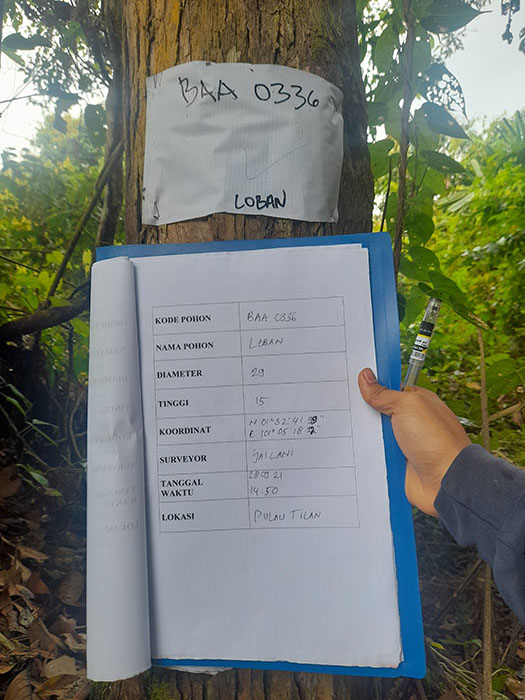 BAA 0336
LOBAN
KODE POHON BAA 0336
NAMA POHON LOBAN
DIAMETER 29
TINGGI 15
KOORDINAT N 01° 32' 41
E 101° 05' 18
SURVEYOR JAILANI
TANGGAL 21
WAKTU 14:50
LOKASI PULAU TILAN